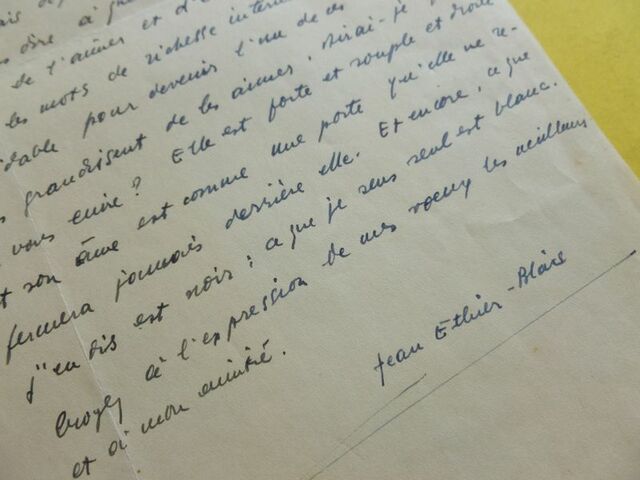 dire à
de t'aimer et d'
les mots de richesse
dable pour devenir l'un de ces
grandissent de les aimer, dirai-je
vous écrire? Elle est forte et souple et droite
son âme est comme une porte qu'elle ne re-
fermera jamais derrière elle. Et encore, ce que
j'en dis est noir; ce que je sens seul est blanc.
Croyez à l'expression de mes voeux les meilleurs
et à mon amitié.
Jean Ethier-Blais